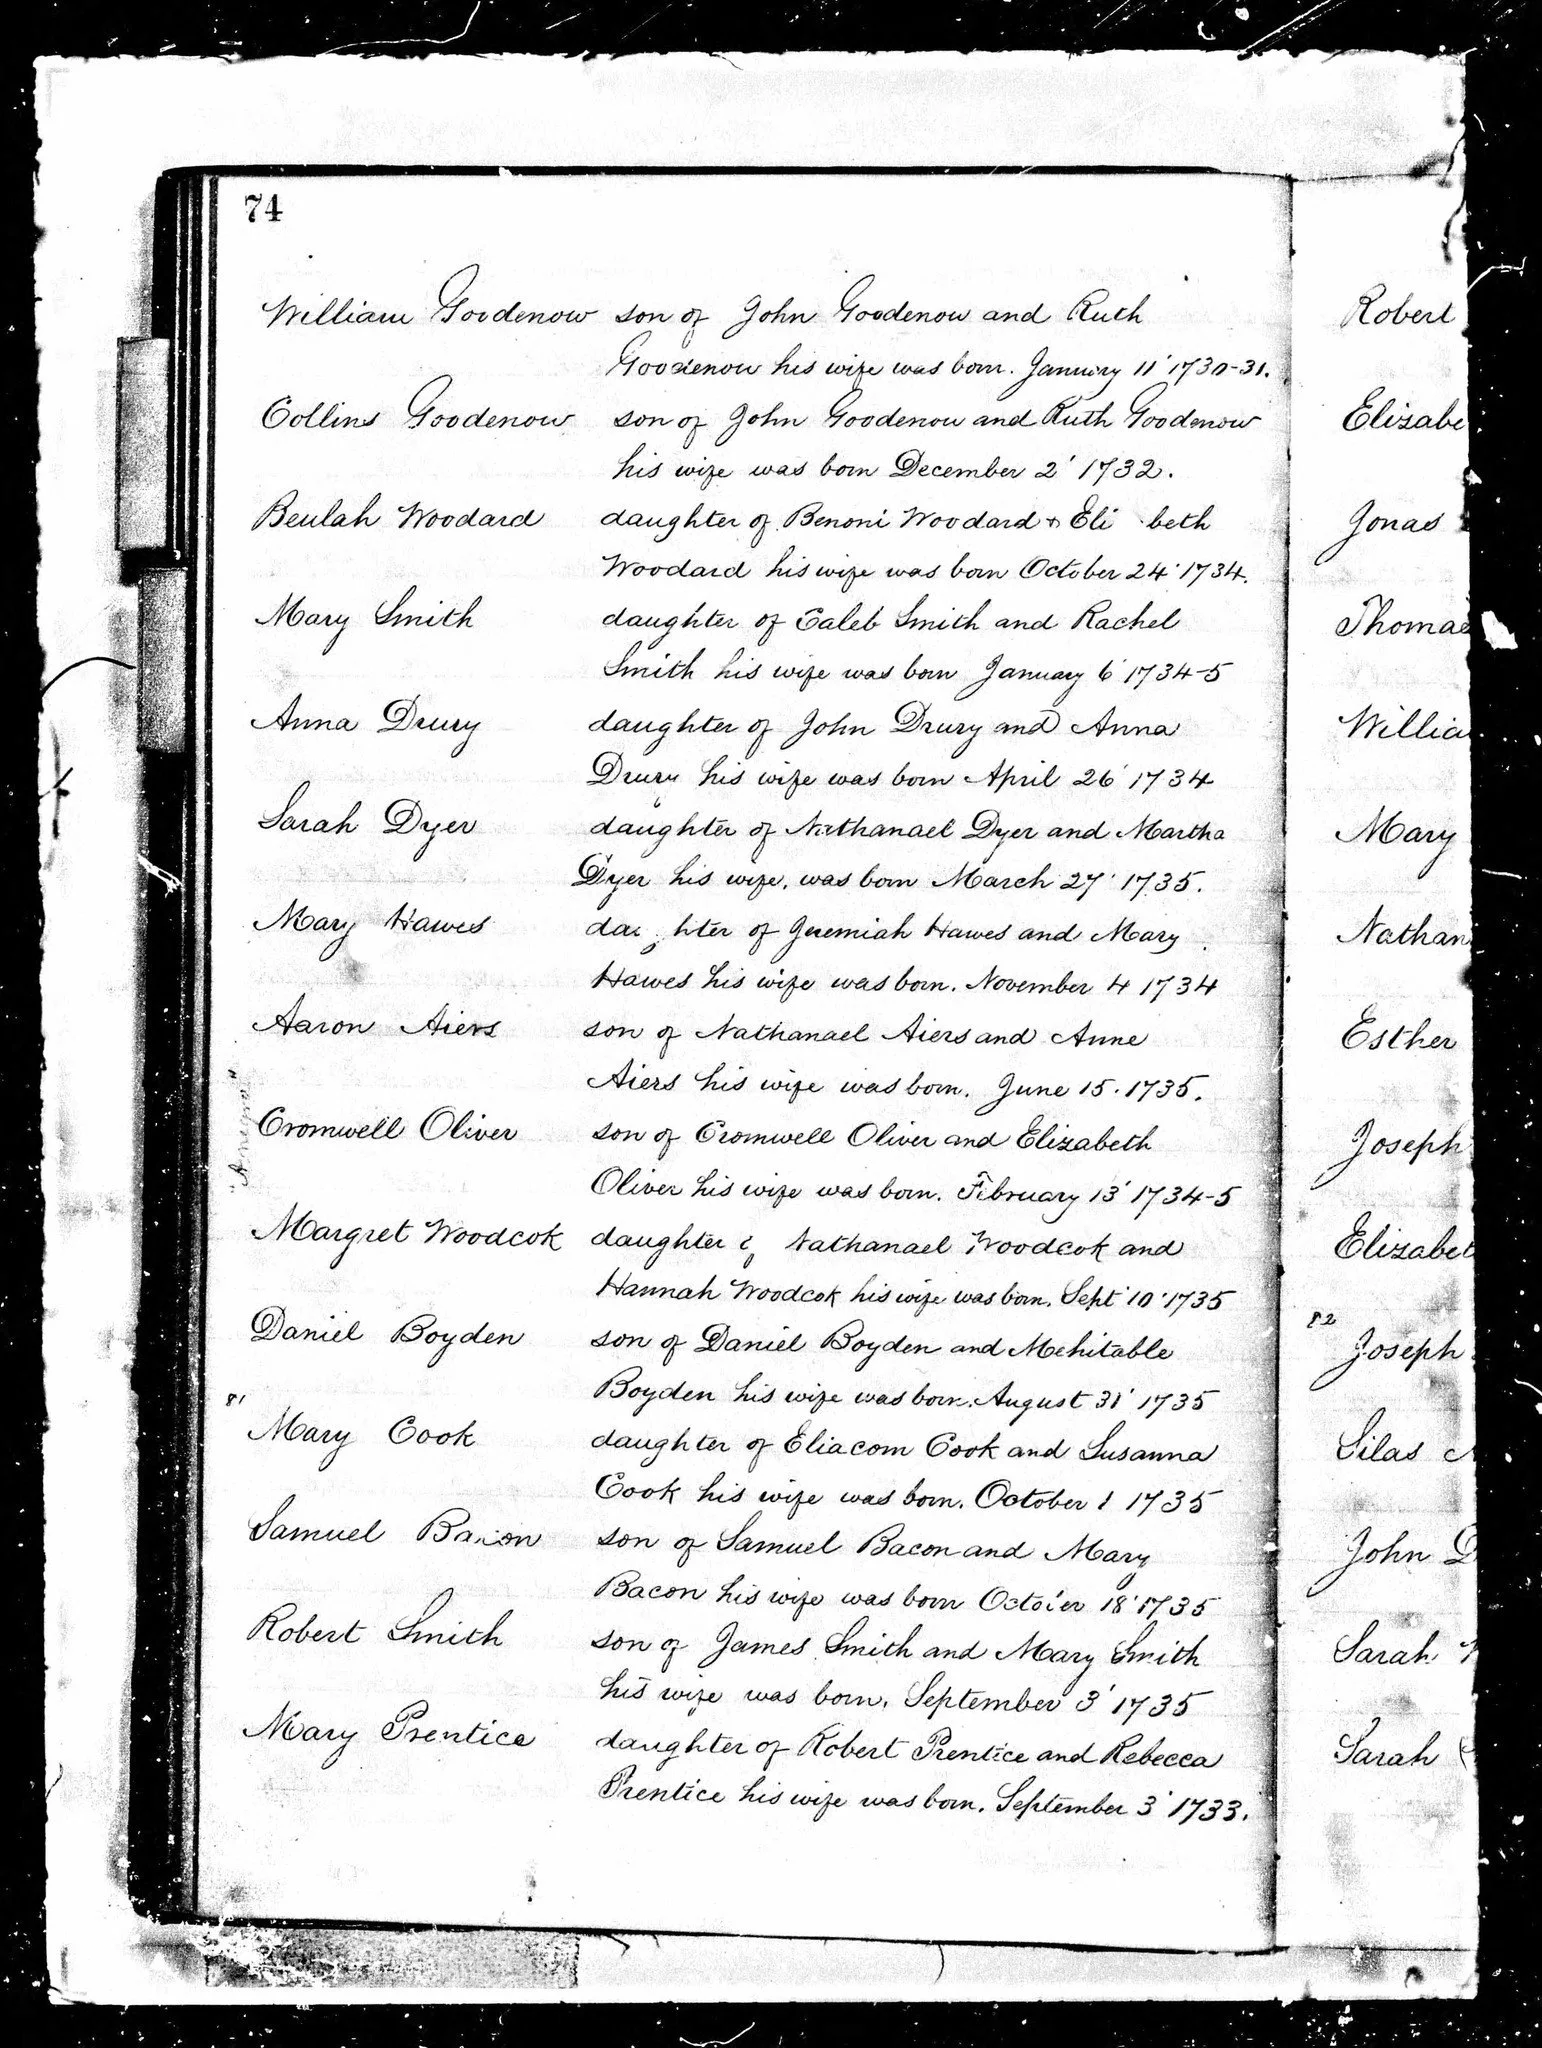 74
William Goodenow son of John Goodenow and Ruth
Goodenow his wife was born. January 11' 1730-31.
Collins Goodenow son of John Goodenow and Ruth Goodenow
his wife was born December 2' 1732.
Beulah Woodard daughter of Benoni Woodard & Eli beth
Woodard his wife was born October 24' 1734.
Mary Smith daughter of Caleb Smith and Rachel
Smith his wife was born January 6' 1734-5
Anna Drury daughter of John Drury and Anna
Drury his wife was born April 26' 1734
Sarah Dyer daughter of Nathanael Dyer and Martha
Dyer his wife. was born March 27' 1735.
Mary Hawes daughter of Jeremiah Hawes and Mary
Hawes his wife was born. November 4 1734
Aaron Aiers son of Nathanael Aiers and Anne
Aiers his wife was born. June 15. 1735.
Cromwell Oliver son of Cromwell Oliver and Elizabeth
Oliver his wife was born. February 13' 1734-5
Margret Woodcok daughter of Nathanael Woodcok and
Hannah Woodcok his wife was born. Sept' 10' 1735
Daniel Boyden son of Daniel Boyden and Mehitable
Boyden his wife was born. August 31' 1735
81
Mary Cook daughter of Eliacom Cook and Susanna
Cook his wife was born. October 1 1735
Samuel Bacon son of Samuel Bacon and Mary
Bacon his wife was born October 18' 1735
Robert Smith son of James Smith and Mary Smith
his wife was born. September 3' 1735
Mary Prentice daughter of Robert Prentice and Rebecca
Prentice his wife was born. September 3' 1733.
Robert
Elizabe
Jonas
Thomas
Willia
Mary
Nathan
Esther
Joseph
Elizabet
82
Joseph
Silas
John D
Sarah
Sarah